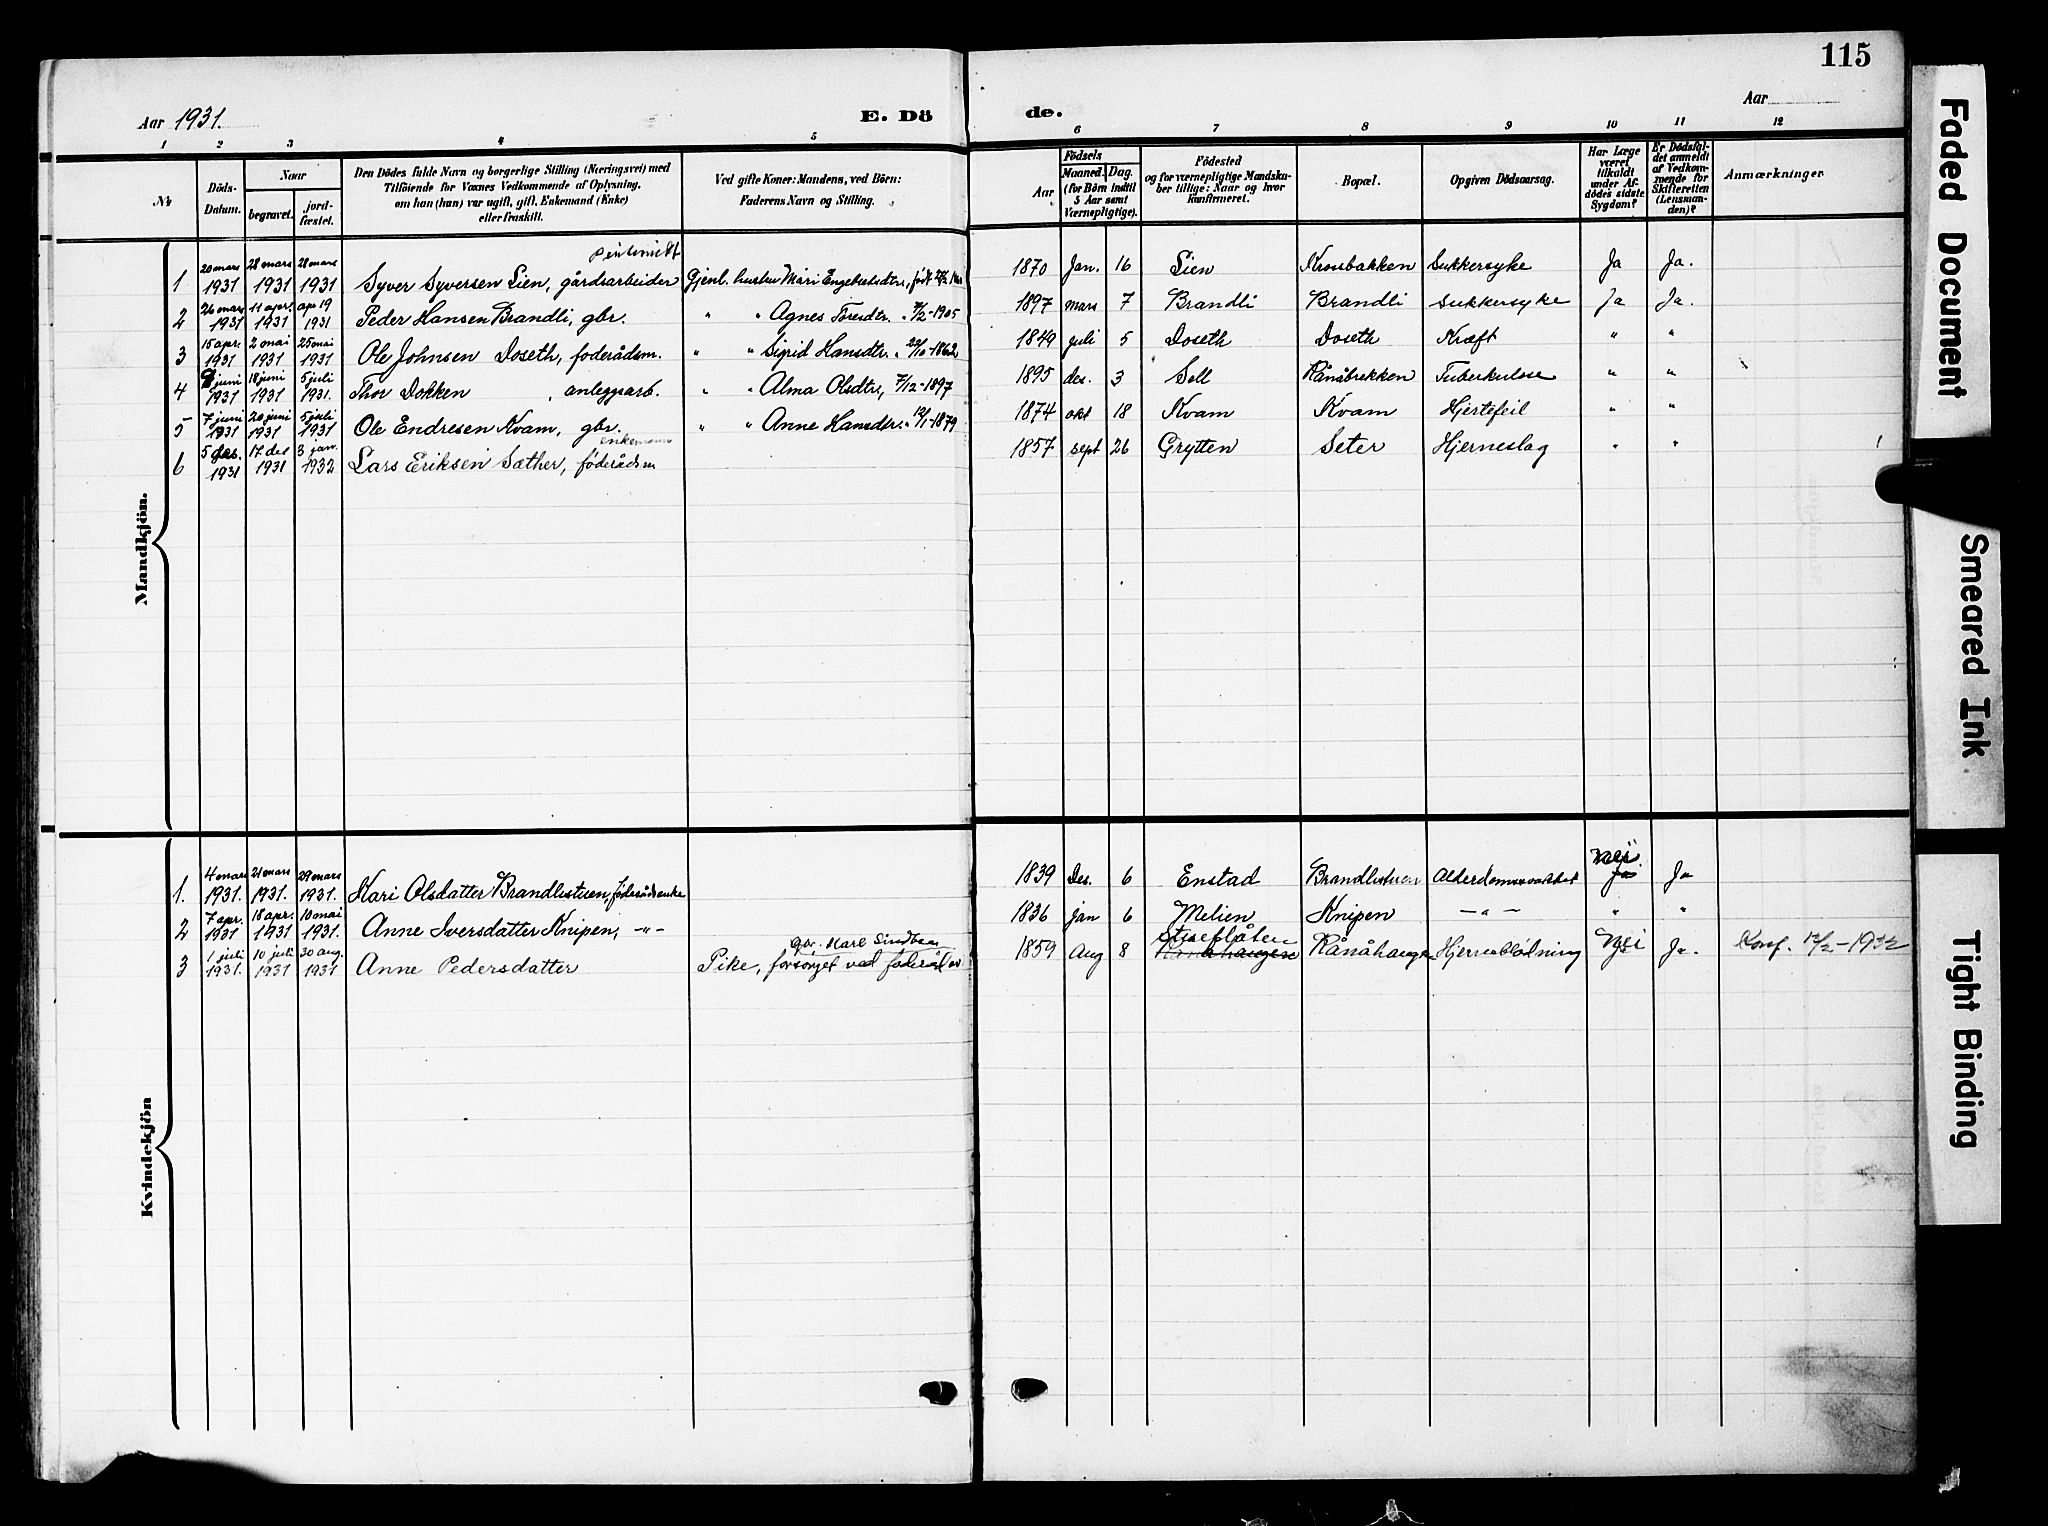 115
Aar 1931.
E. Dö
de.
Aar
1 2 3 4 5 6 7 8 9 10 11 12
No
Döds-Datum.
Naar
begravet.
jord-fæstet.
Den Dödes fulde Navn og borgerlige Stilling (Næringsvei) med
Tilföiende for Voxnes Vedkommende af Oplysning,
om han (hun) var ugift, gift, Enkemand (Enke)
eller fraskilt.
Ved gifte Koner: Mandens, ved Börn:
Faderens Navn og Stilling.
Födsels
Aar
Maaned. Dag.
(for Börn indtil
5 Aar samt
Værnepligtige).
Födested
og for værnepligtige Mandska-
ber tillige: Naar og hvor
konfirmeret.
Bopæl.
Opgiven Dödsaarsag.
Har Læge
været
tilkaldt
under Af-
dödes sidste
Sygdom?
Er Dödsfal-
det anmeldt
af Vedkom-
mende for
Skifteretten
(Lensman-
den)?
Anmærkninger
Mandkjön.
1 20 mars 1931 28 mars 1931 28 mars 1931 Syver Syversen Lien, gårdsarbeider Gjenl. hustru Mari Engebretsdtr, født 1870 Jan. 16 Lien Krossbakken Sukkersyke Ja Ja.
2 26 mars 1931 11 apr. 1931 apr 19 1931 Peder Hansen Brandli, gbr. " " Agnes Toresdtr. " 7/2-1905 1897 mars 7 Brandli Brandli Sukkersyke Ja Ja.
3 15 apr. 1931 2 mai 1931 25 mai 1931 Ole Johnsen Doseth, føderådsm. " " Sigrid Hansdtr. " 29/10-1862 1849 juli 5 Doseth Doseth Kræft " "
4 9 juni 1931 18 juni 1931 5 juli 1931. Thor Dokken, anleggsarb. " " Alma Olsdtr, 7/12-1897 1895 des. 3 Sell Rånåbrekken Tuberkulose " "
5 7 juni 1931 20 juni 1931 5 juli 1931 Ole Endresen Kvam, gbr. " " Anne Hansdtr. " 12/1-1879 1874 okt 18 Kvam Kvam Hjertefeil " "
6 5 des. 1931 17 des 1931 3 jan. 1932 Lars Eriksen Sæther, føderådsm enkemann 1857 sept 26 Grytten Seter Hjerneslag " "
Kvindekjön
1. 4 mars 1931. 21 mars 1931. 29 mars 1931. Kari Olsdatter Brandlistuen, føderådsenke 1839 Des. 6 Enstad Brandlistuen Alderdomssvakhet Nei Ja Ja
2 7 apr. 1931 18 apr. 1931 10 mai 1931. Anne Iversdatter Knipen, -"- 1836 jan 6 Melien Knipen -"- " "
3 1 juli 1931. 10 juli 1931 30 aug. 1931 Anne Pedersdatter Pike, forsørget ved føderåd av gbr. Karl Sindbæn 1859 Aug 8 Rånåhaugen Hjerneblødning Nei Ja. Konf. 12/2-1932
Faded Document
Smeared Ink
Tight Binding